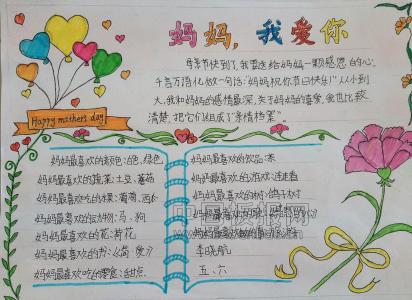 妈妈,我爱你
母亲节快到了,我要送给妈妈一颗感恩的心,
千言万语化做一句话:"妈妈祝你节日快乐!"从小到
大,我和妈妈的感情最深,关于妈妈的喜爱,我也比较
清楚,把它们组成了"亲情档案"。
Happy mothers day
妈妈最喜欢的颜色:白色,绿色
妈妈最喜欢的蔬菜:土豆、蘑菇
妈妈最喜欢的水果:葡萄、西
妈妈最喜欢的动物:马、狗
妈妈最喜欢的花:荷花
妈妈最喜欢的书:
妈妈最喜欢吃的零食:甜点
妈妈最喜欢的饮品:茶
妈妈最喜欢的运动:走路
妈妈最喜欢的树:
妈妈最喜欢
妈妈最喜欢
李晓航
五、六